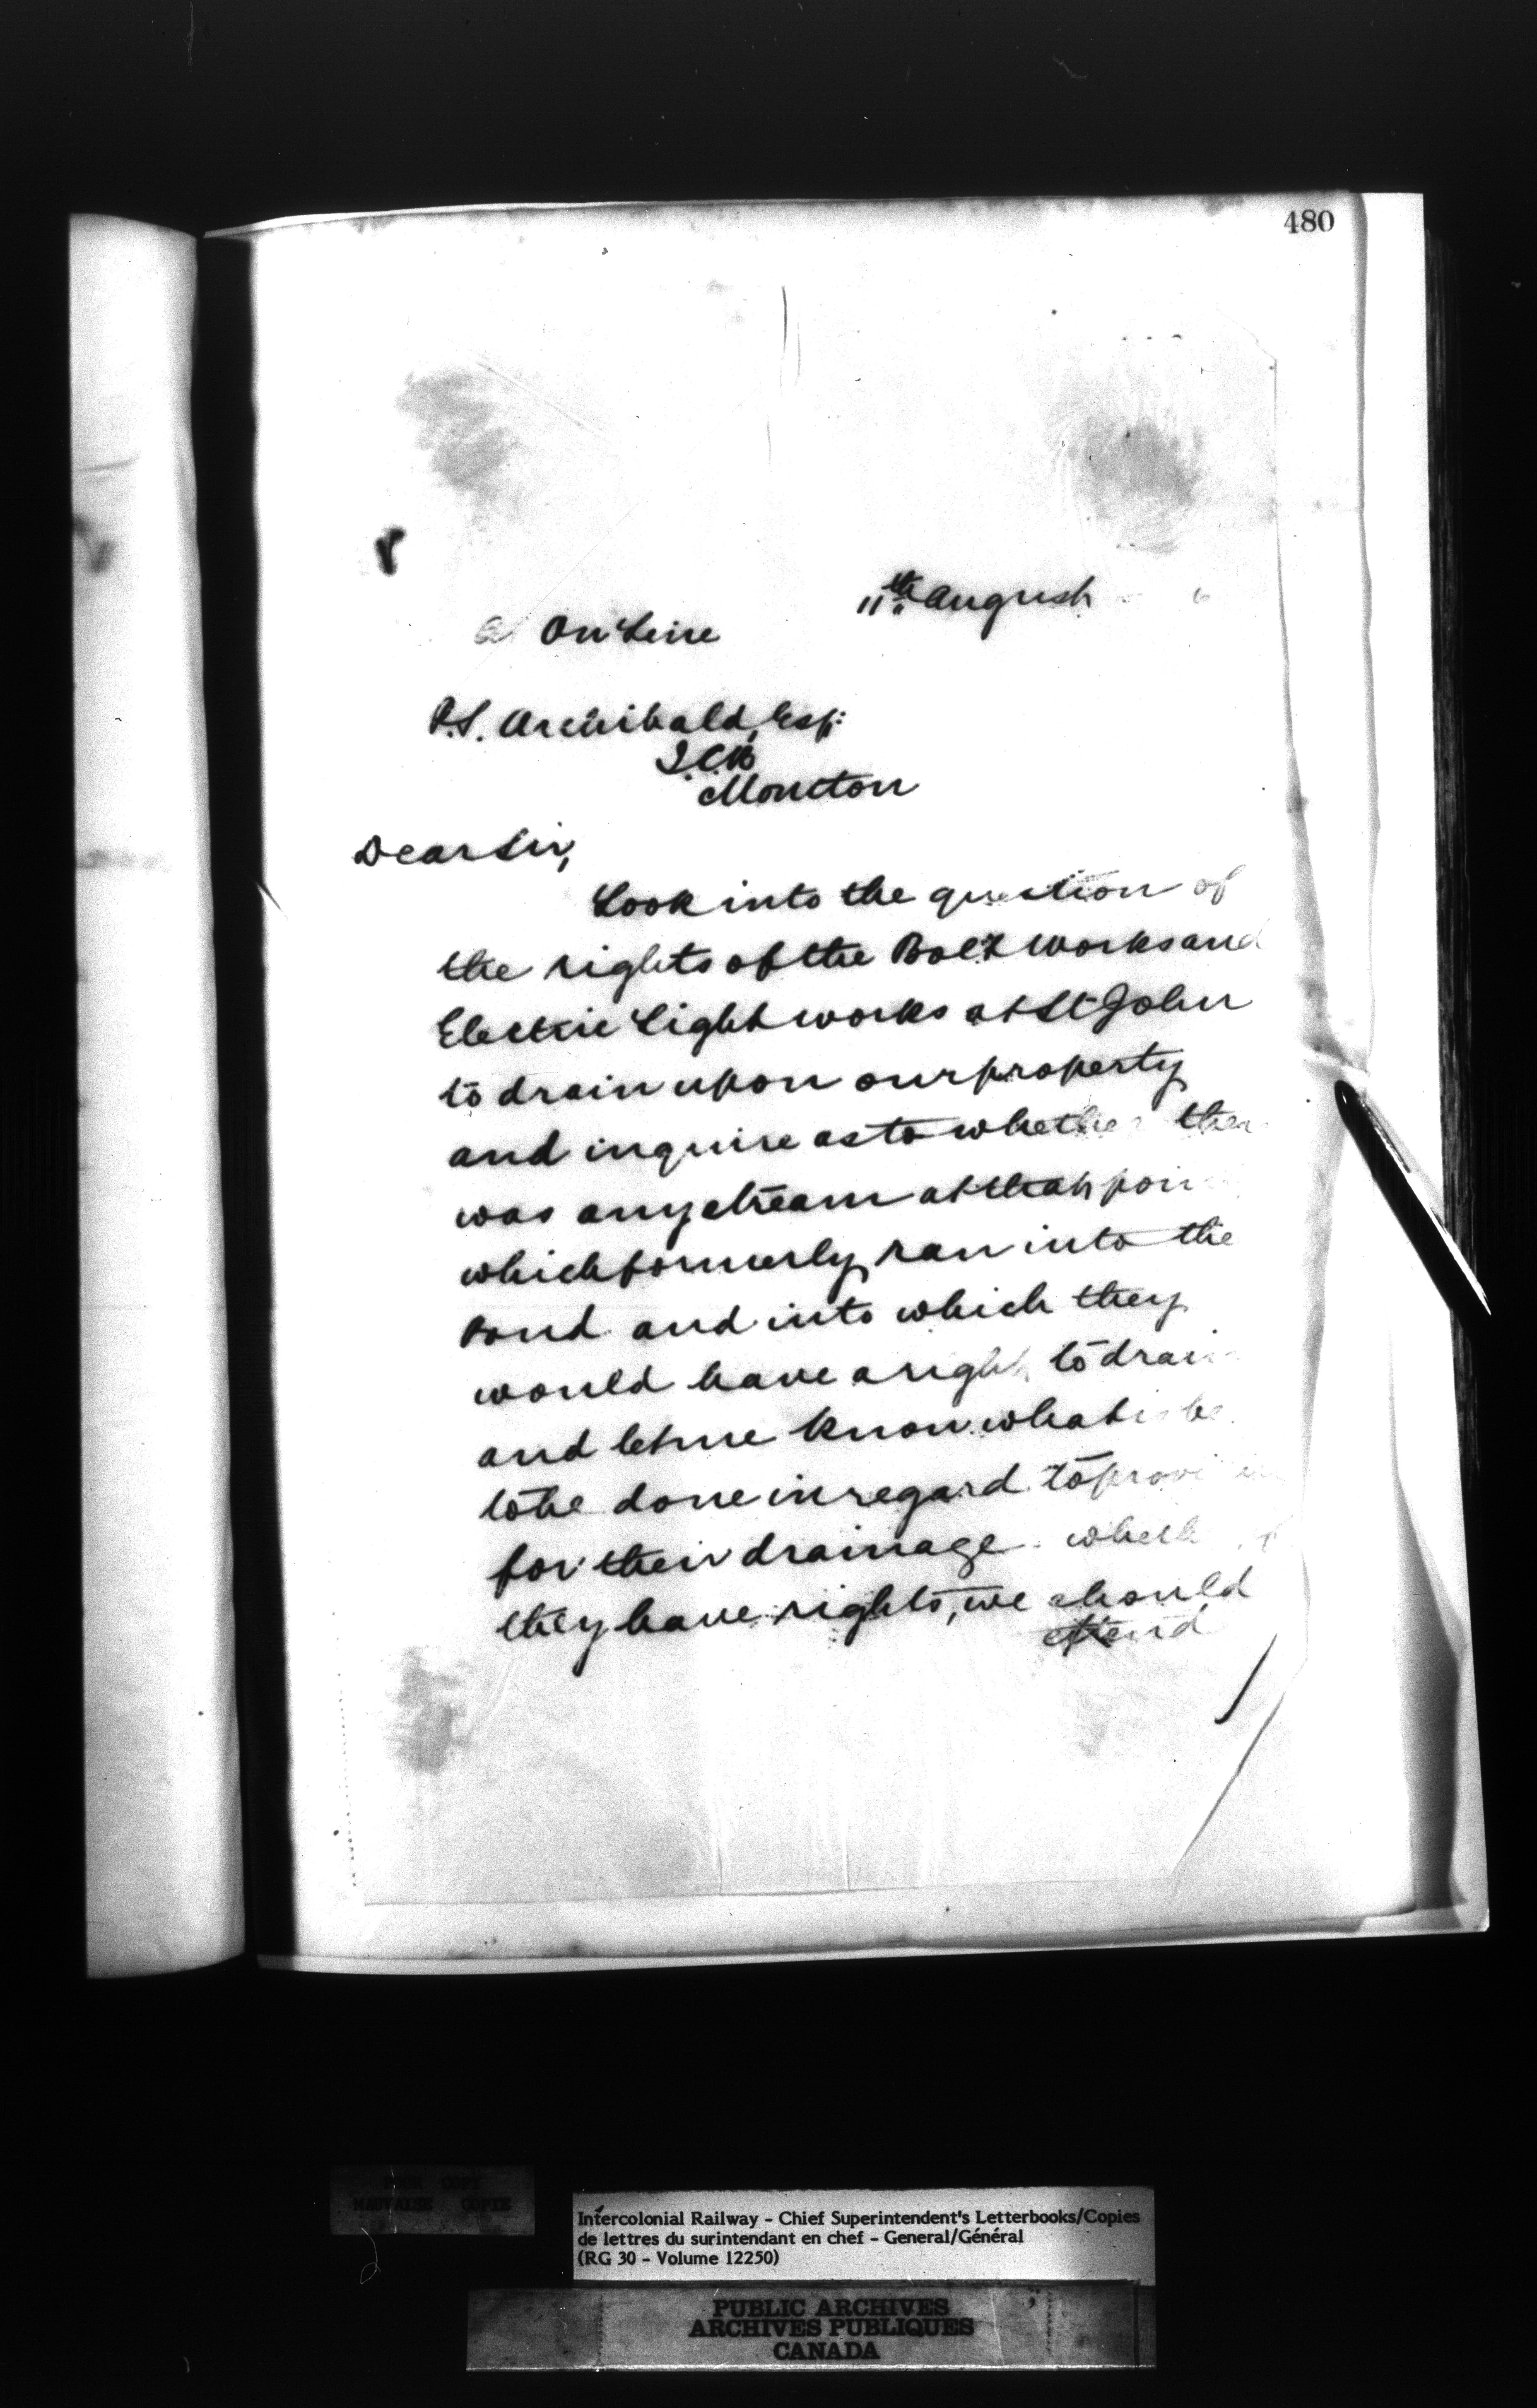 480
11th August 6
a On Line
P.S. Archibald, Esq:
I.C.R
Moncton
Dear Sir,
Look into the question of
the rights of the Bolt works and
Electric Light works at St John
to drain upon our property
and inquire as to whether ther
was any stream at that poin
which formerly ran into the
Pond and into which they
would have a right to drai
and let me know what is be
to be done in regard to
for their drainage.
they have rights, we should
attend
POOR COPY
MAUVAISE COPIE
Intercolonial Railway - Chief Superintendent's Letterbooks/Copies
de lettres du surintendant en chef - General/Général
(RG 30 - Volume 12250)
PUBLIC ARCHIVES
ARCHIVES PUBLIQUES
CANADA